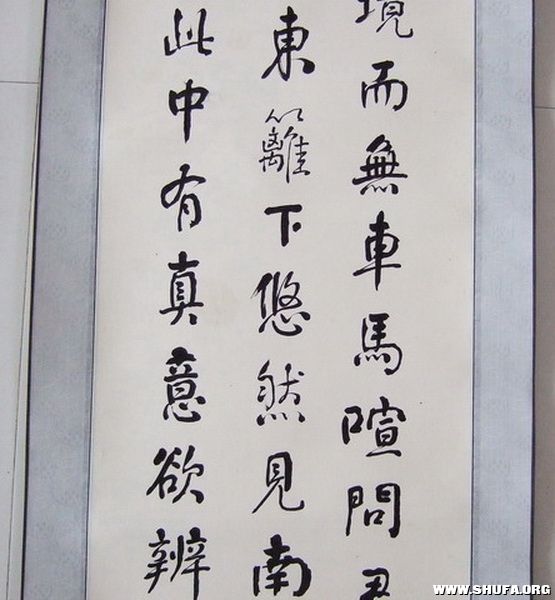 境而無車馬喧問君
東籬下悠然見南
此中有真意欲辨
WWW.SHUFA.ORG